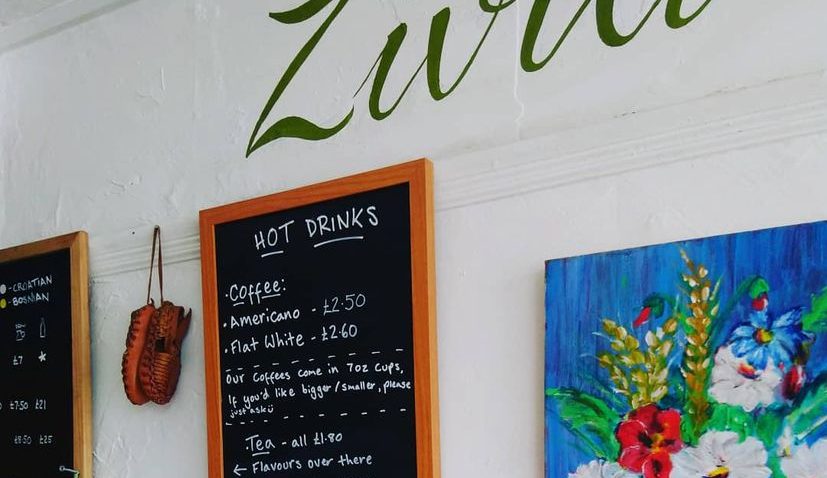 HOT DRINKS
• Coffee:
• Americano - £2.50
• Flat White - £2.60
Our coffees come in 7oz cups,
If you'd like bigger/smaller, please
just ask ü
• Tea - all £1.80
← Flavours over there
- CROATIAN
- BOSNIAN
£7
£7.50 £21
£8.50 £25